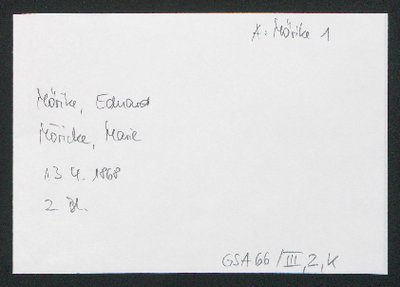 A: Mörike 1
Mörike, Eduard
Möricke, Marie
13. 4. 1868
2 Bl.
GSA 66 / III, 2, K